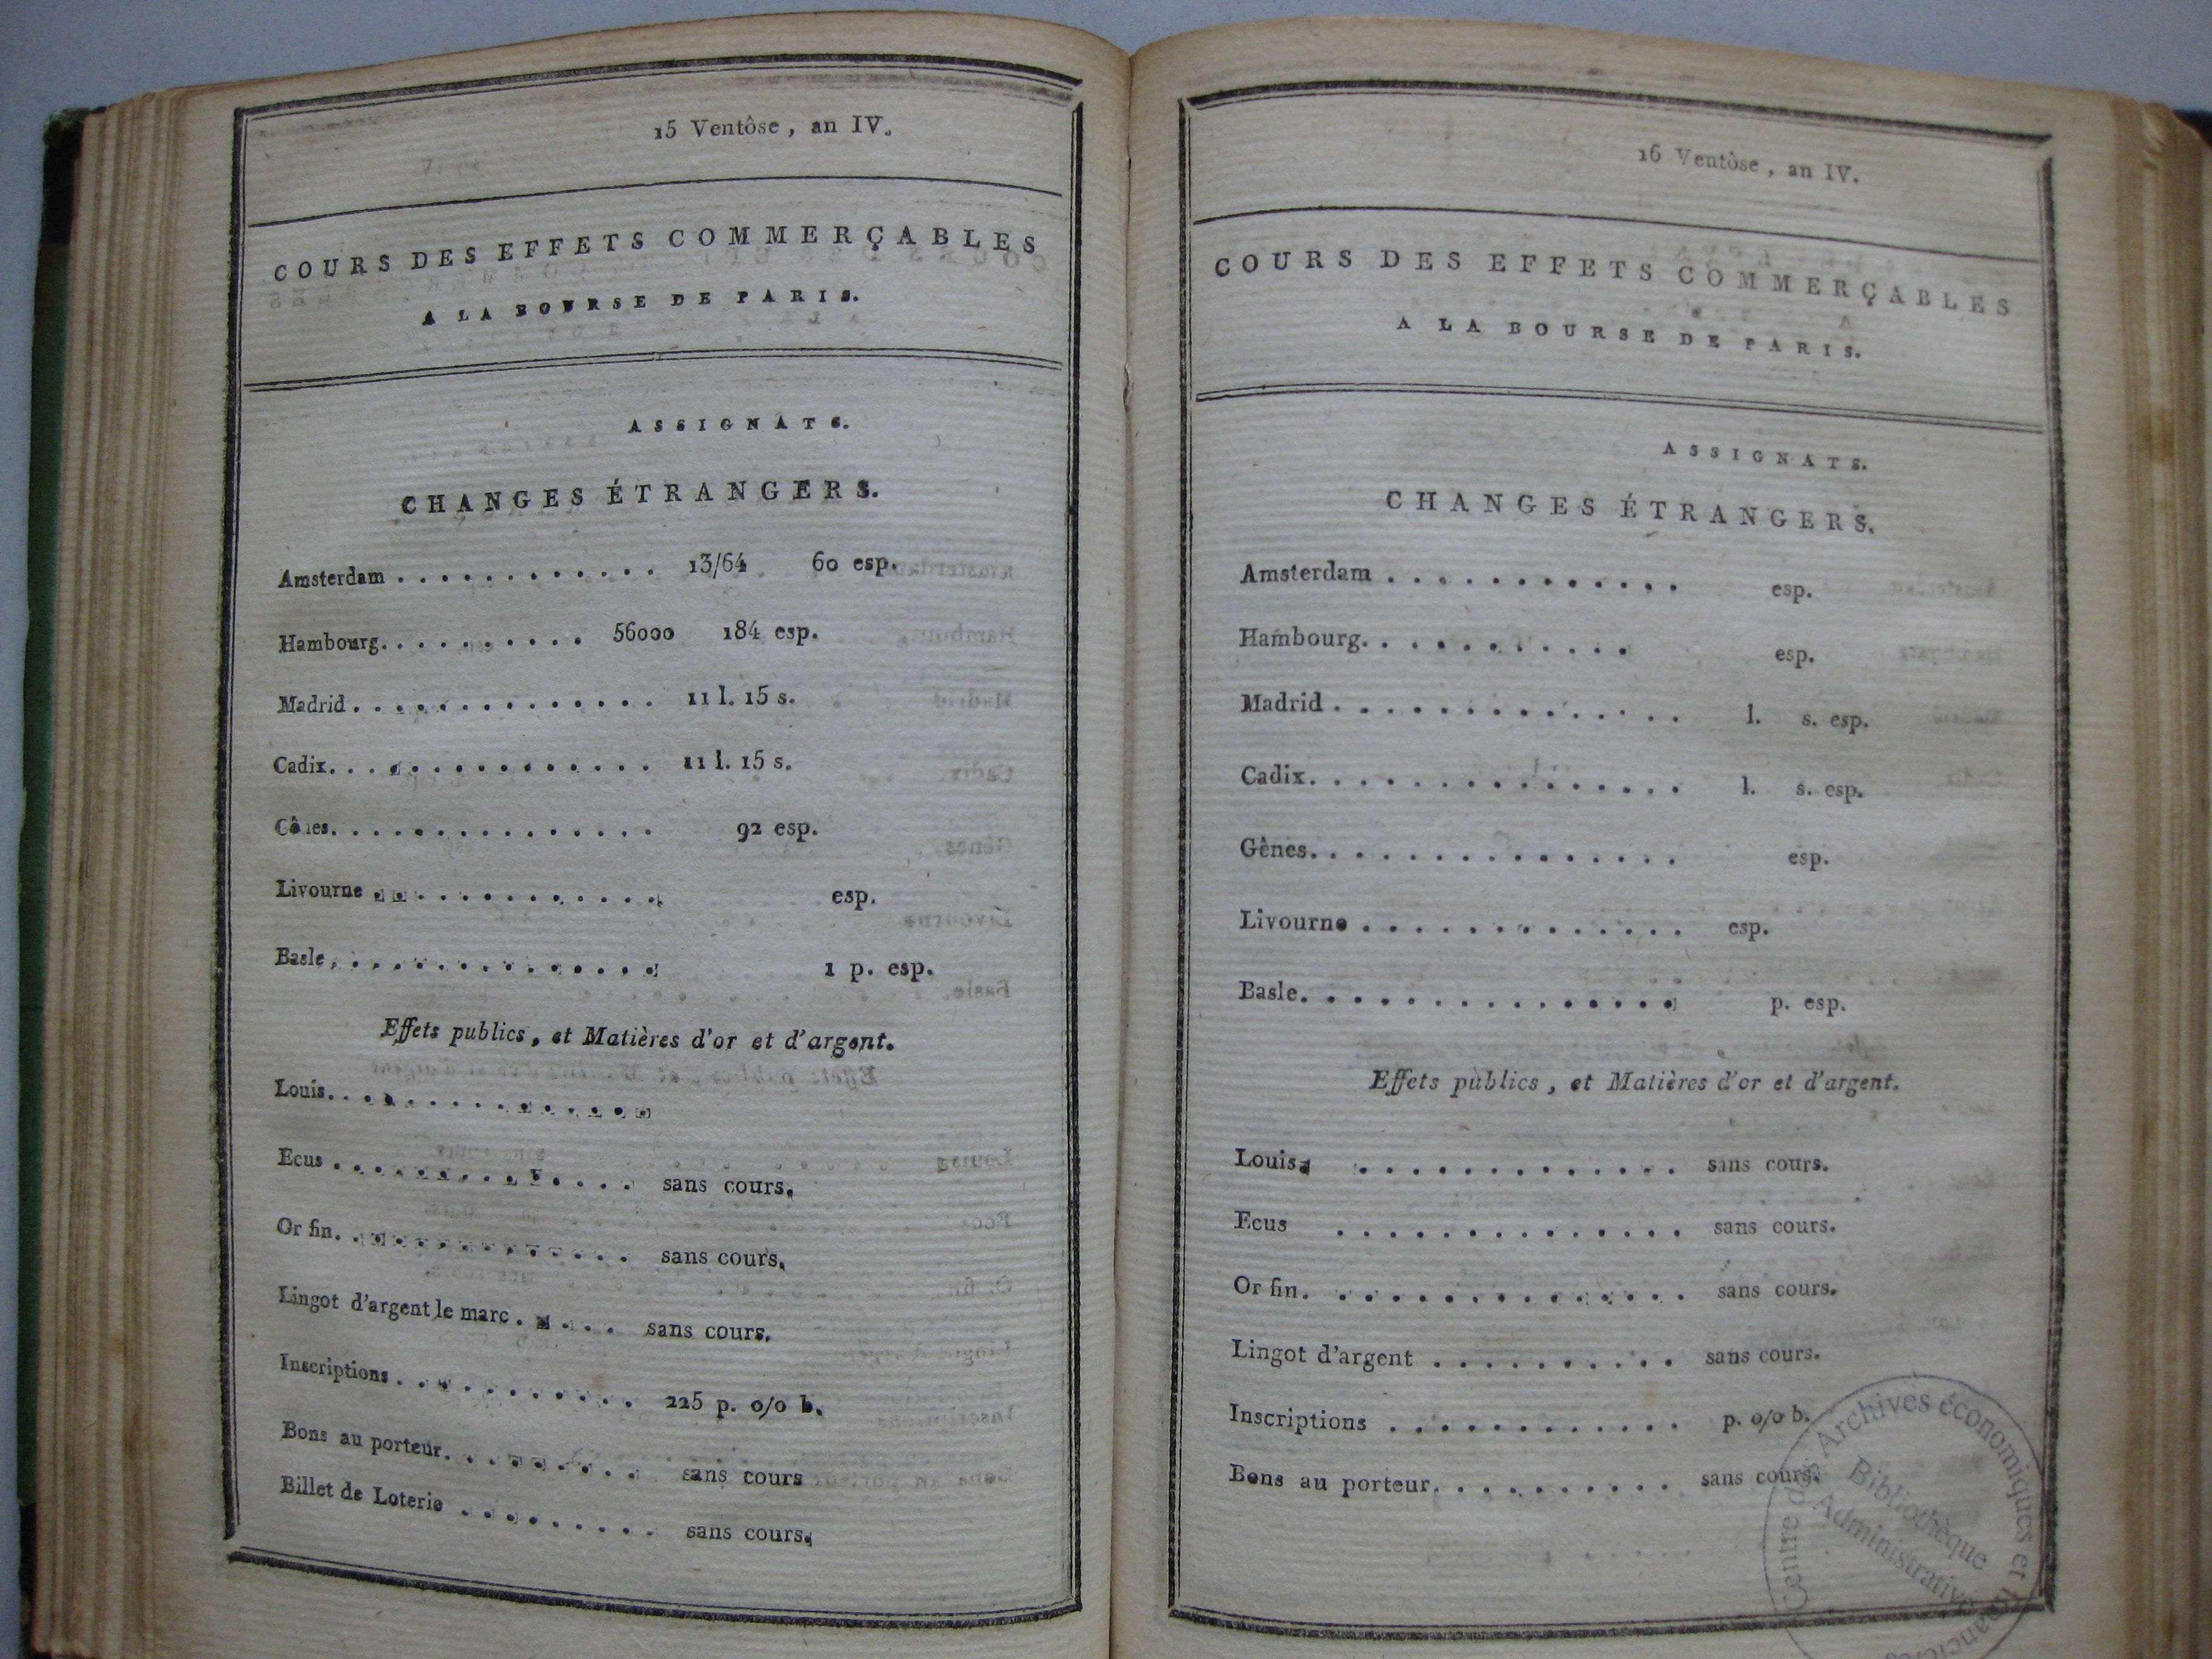 15 Ventôse, an IV.
COURS DES EFFETS COMMERÇABLES
A LA BOURSE DE PARIS.
ASSIGNATS.
CHANGES ÉTRANGERS.
Amsterdam . . . . . . . . . . . . . 13/64 60 esp.
Hambourg. . . . . . . . . . 56000 184 esp.
Madrid . . . . . . . . . . . . . . 11 l. 15 s.
Cadix. . . . . . . . . . . . . . . 11 l. 15 s.
. . . . . . . . . . . . . . . 92 esp.
Livourne . . . . . . . . . . . . . esp.
Basle, . . . . . . . . . . . . . . 1 p. esp.
Effets publics, et Matières d'or et d'argent.
Louis. . . . . . . . . . . . . . .
Ecus . . . . . . . . . . . . . . sans cours.
Or fin. . . . . . . . . . . . . . sans cours.
Lingot d'argent le marc . . . . . sans cours.
Inscriptions . . . . . . . . . . . 225 p. o/o b.
Bons au porteur. . . . . . . . . sans cours
Billet de Loterie . . . . . . . . . sans cours.
16 Ventôse, an IV.
COURS DES EFFETS COMMERÇABLES
A LA BOURSE DE PARIS.
ASSIGNATS.
CHANGES ÉTRANGERS.
Amsterdam . . . . . . . . . . . . esp.
Hambourg. . . . . . . . . . . esp.
Madrid . . . . . . . . . . . . . . l. s. esp.
Cadix. . . . . . . . . . . . . . . l. s. esp.
Gênes. . . . . . . . . . . . . . . esp.
Livourne . . . . . . . . . . . . . esp.
Basle. . . . . . . . . . . . . . . p. esp.
Effets publics, et Matières d'or et d'argent.
Louis . . . . . . . . . . . . . sans cours.
Ecus . . . . . . . . . . . . . . sans cours.
Or fin. . . . . . . . . . . . . . . sans cours.
Lingot d'argent . . . . . . . . . . sans cours.
Inscriptions . . . . . . . . . . . . p. o/o b.
Bons au porteur. . . . . . . . . . sans cours.
Centre des Archives économiques et
Bibliothèque
Administrative